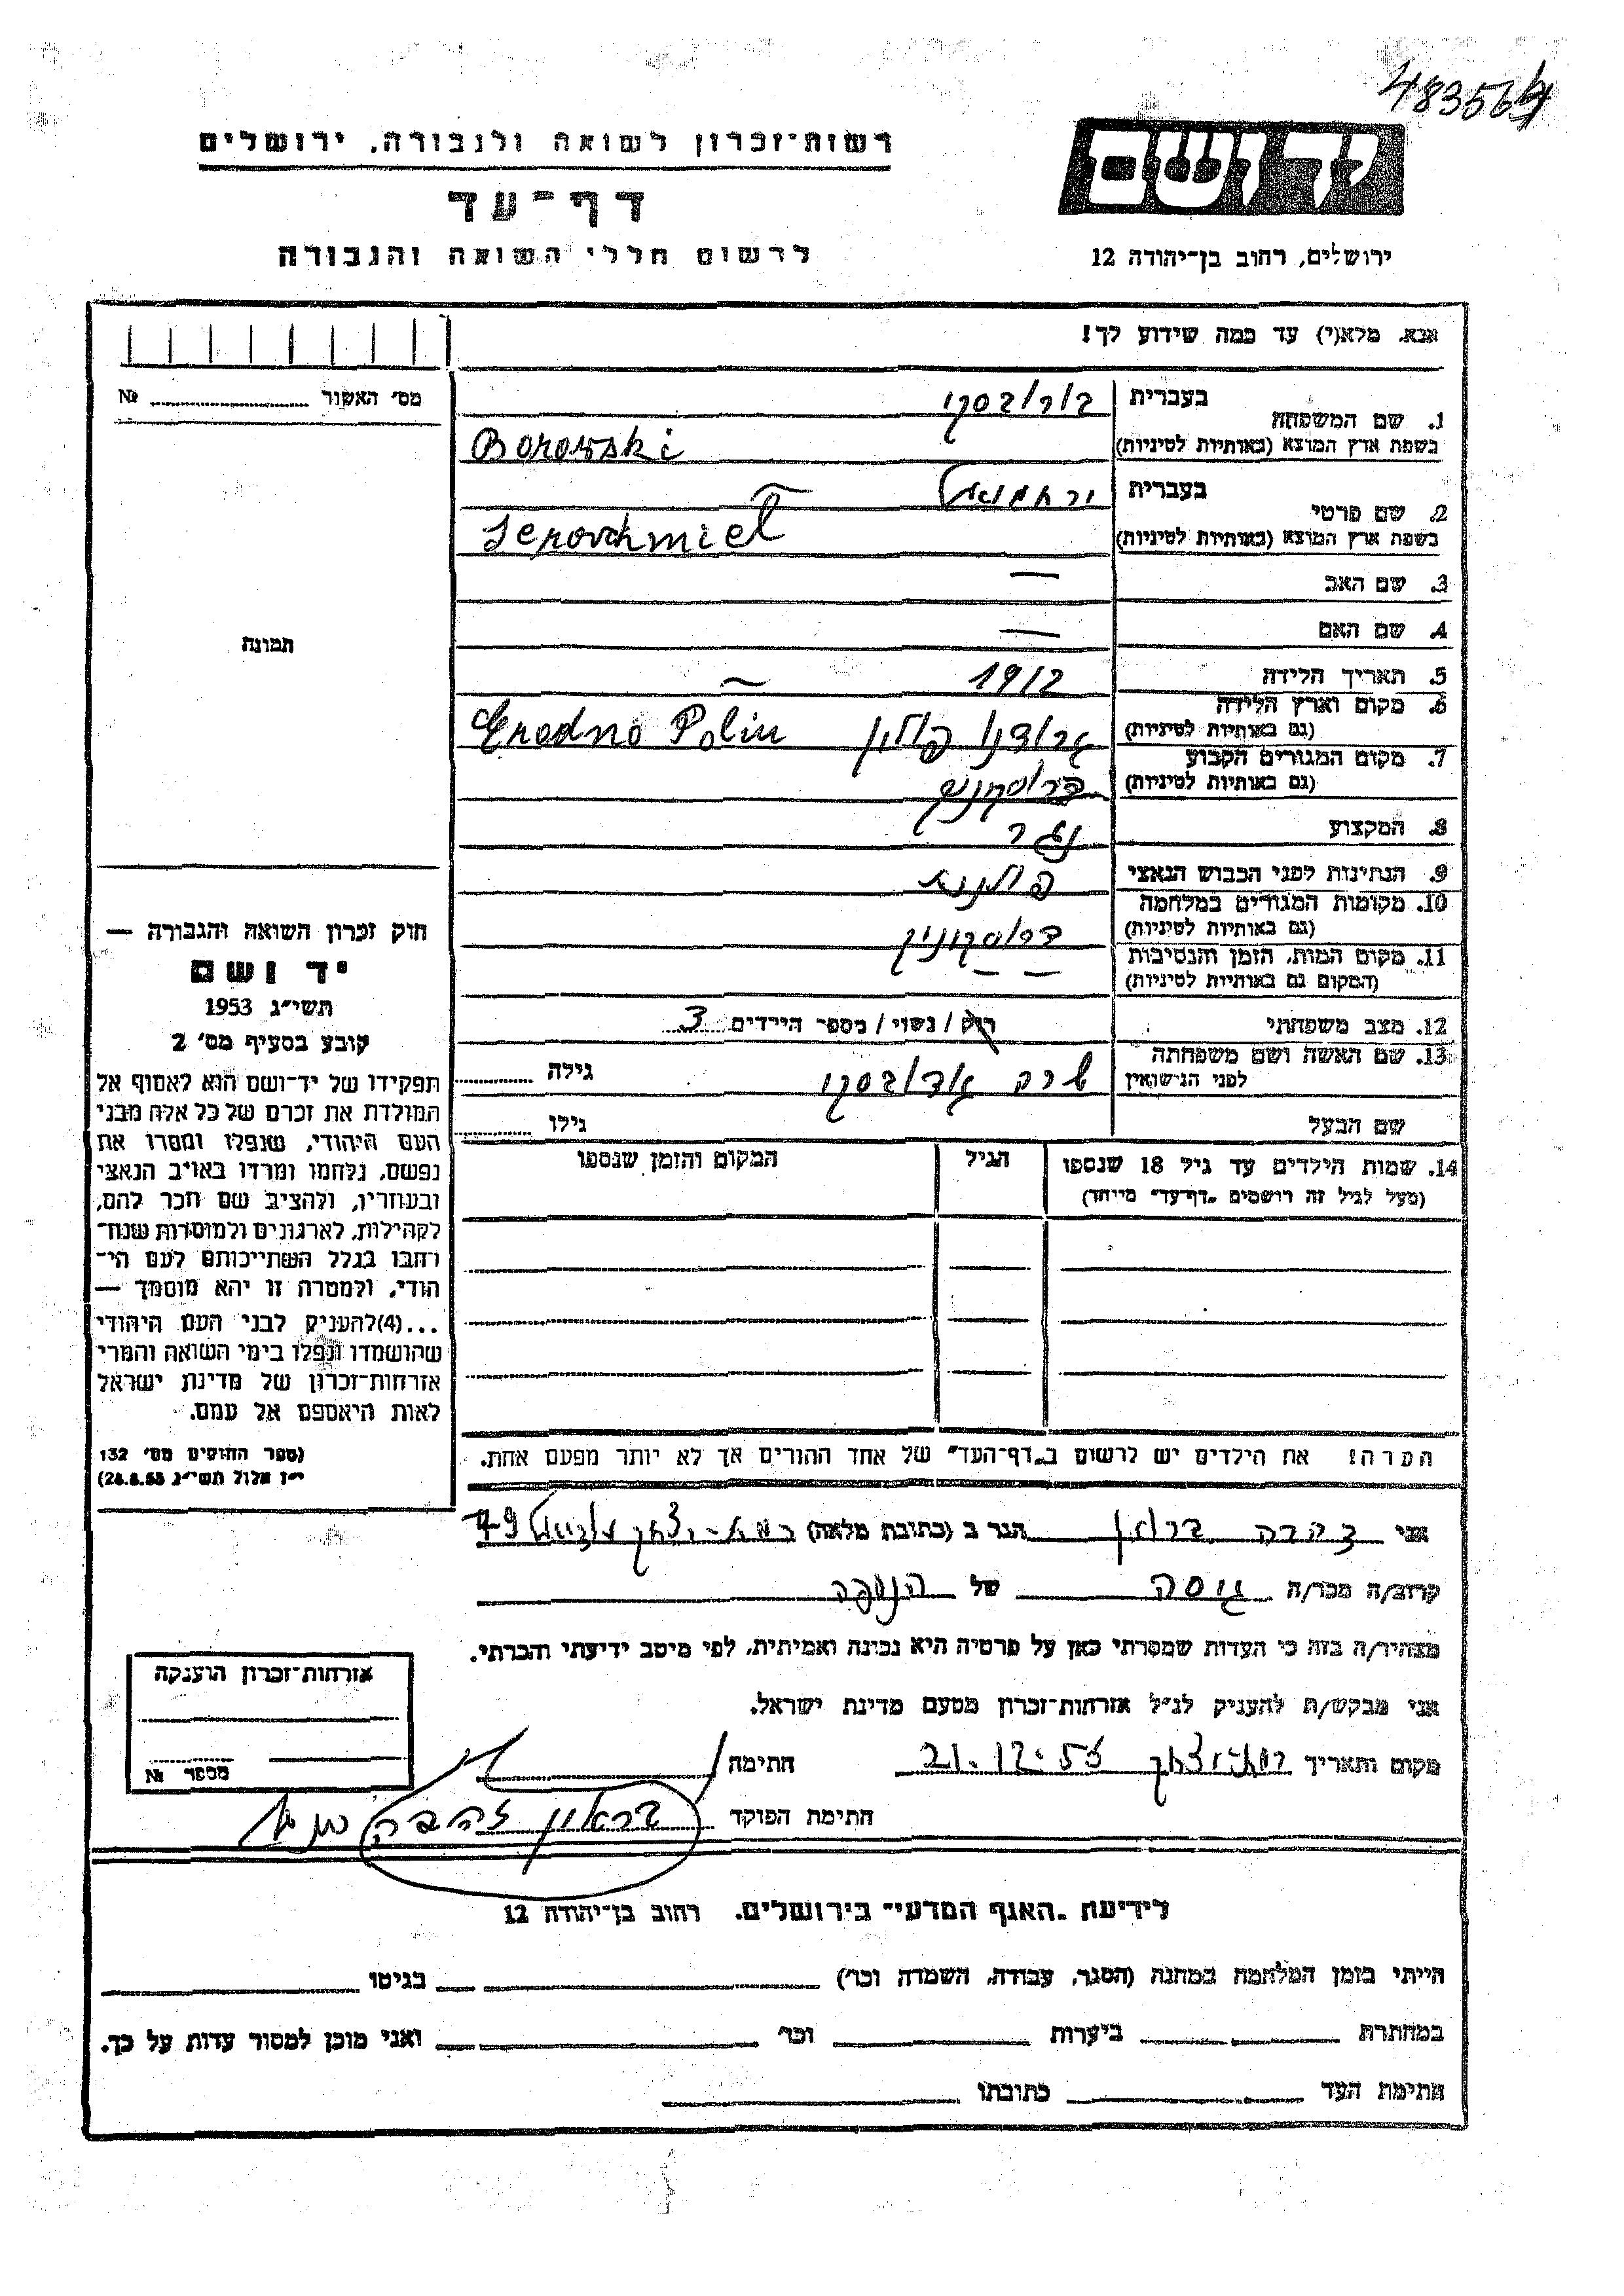 רשות־זכרון לשואה ולגבורה, ירושלים
דף־עד
לרשום חללי השואה והגבורה
יד ושם
ירושלים, רחוב בן־יהודה 12
אנא, מלא(י) עד כמה שידוע לך!
מס׳ האשור № 
1. שם המשפחה בעברית בורובסקי
בשפת ארץ המוצא (באותיות לטיניות) Borowski
2. שם פרטי בעברית ירחמיאל
בשפת ארץ המוצא (באותיות לטיניות)
3. שם האב —
4. שם האם —
5. תאריך הלידה 1912 —
6. מקום וארץ הלידה (גם באותיות לטיניות) גרודנו פולין Grodno Polin
7. מקום המגורים הקבוע (גם באותיות לטיניות)
8. המקצוע נגר
9. הנתינות לפני הכבוש הנאצי
10. מקומות המגורים במלחמה (גם באותיות לטיניות) דרוסקוניק
11. מקום המות, הזמן והנסיבות (המקום גם באותיות לטיניות) — —
12. מצב משפחתי רווק / נשוי / מספר הילדים 3
13. שם האשה ושם משפחתה לפני הנישואין שרה גילה
שם הבעל גילו
14. שמות הילדים עד גיל 18 שנספו (מעל לגיל זה רושמים „דף־עד״ מיוחד) הגיל המקום והזמן שנספו
הערה! את הילדים יש לרשום ב„דף־העד״ של אחד ההורים אך לא יותר מפעם אחת.
תמונה
חוק זכרון השואה והגבורה —
יד ושם
תשי״ג 1953
קובע בסעיף מס׳ 2
תפקידו של יד־ושם הוא לאסוף אל
המולדת את זכרם של כל אלה מבני
העם היהודי, שנפלו ומסרו את
נפשם, נלחמו ומרדו באויב הנאצי
ובעוזריו, ולהציב שם וזכר להם,
לקהילות, לארגונים ולמוסדות שנח־
רבו בגלל השתייכותם לעם הי־
הודי, ולמטרה זו יהא מוסמך —
...(4)להעניק לבני העם היהודי
שהושמדו ונפלו בימי השואה והמרי
אזרחות־זכרון של מדינת ישראל
לאות היאספם אל עמם.
(ספר החוקים מס׳ 132
י״ז אלול תשי״ג 28.8.53)
אני זהבה בראון הגר ב (כתובת מלאה) רמת־יצחק 79
קרוב/ה מכר/ה גיסה של הנספה
מצהיר/ה בזה כי העדות שמסרתי כאן על פרטיה היא נכונה ואמיתית, לפי מיטב ידיעתי והכרתי.
אני מבקש/ת להעניק לנ״ל אזרחות־זכרון מטעם מדינת ישראל.
מקום ותאריך רמת־יצחק 21.12.55 חתימה
חתימת הפוקד בראון זהבה
אזרחות־זכרון הוענקה
מספר №
לידיעת „האגף המדעי״ בירושלים. רחוב בן־יהודה 12
הייתי בזמן המלחמה במחנה (הסגר, עבודה, השמדה וכו׳) בגיטו
במחתרת ביערות וכו׳ ואני מוכן למסור עדות על כך.
חתימת העד כתובתו